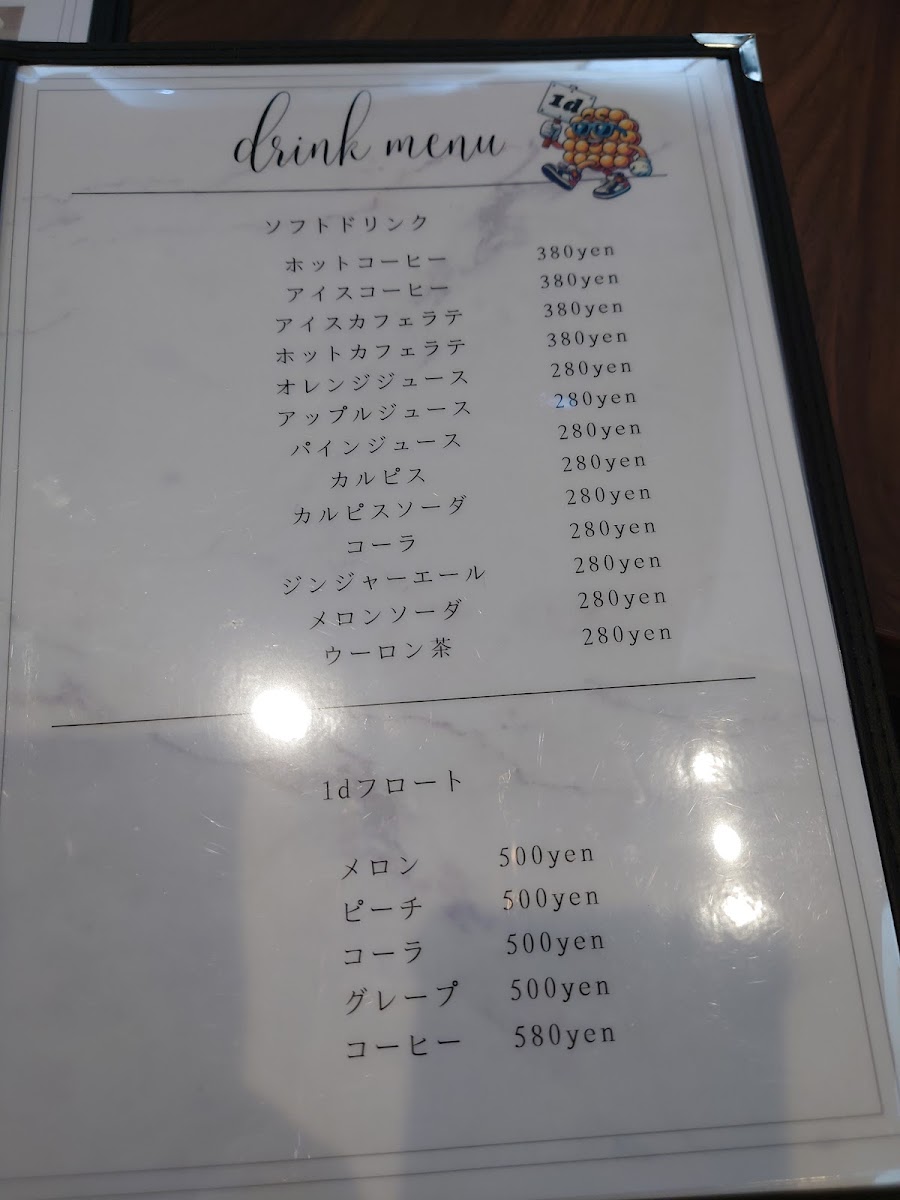 drink menu
1d
ソフトドリンク
ホットコーヒー 380yen
アイスコーヒー 380yen
アイスカフェラテ 380yen
ホットカフェラテ 380yen
オレンジジュース 280yen
アップルジュース 280yen
パインジュース 280yen
カルピス 280yen
カルピスソーダ 280yen
コーラ 280yen
ジンジャーエール 280yen
メロンソーダ 280yen
ウーロン茶 280yen
1dフロート
メロン 500yen
ピーチ 500yen
コーラ 500yen
グレープ 500yen
コーヒー 580yen